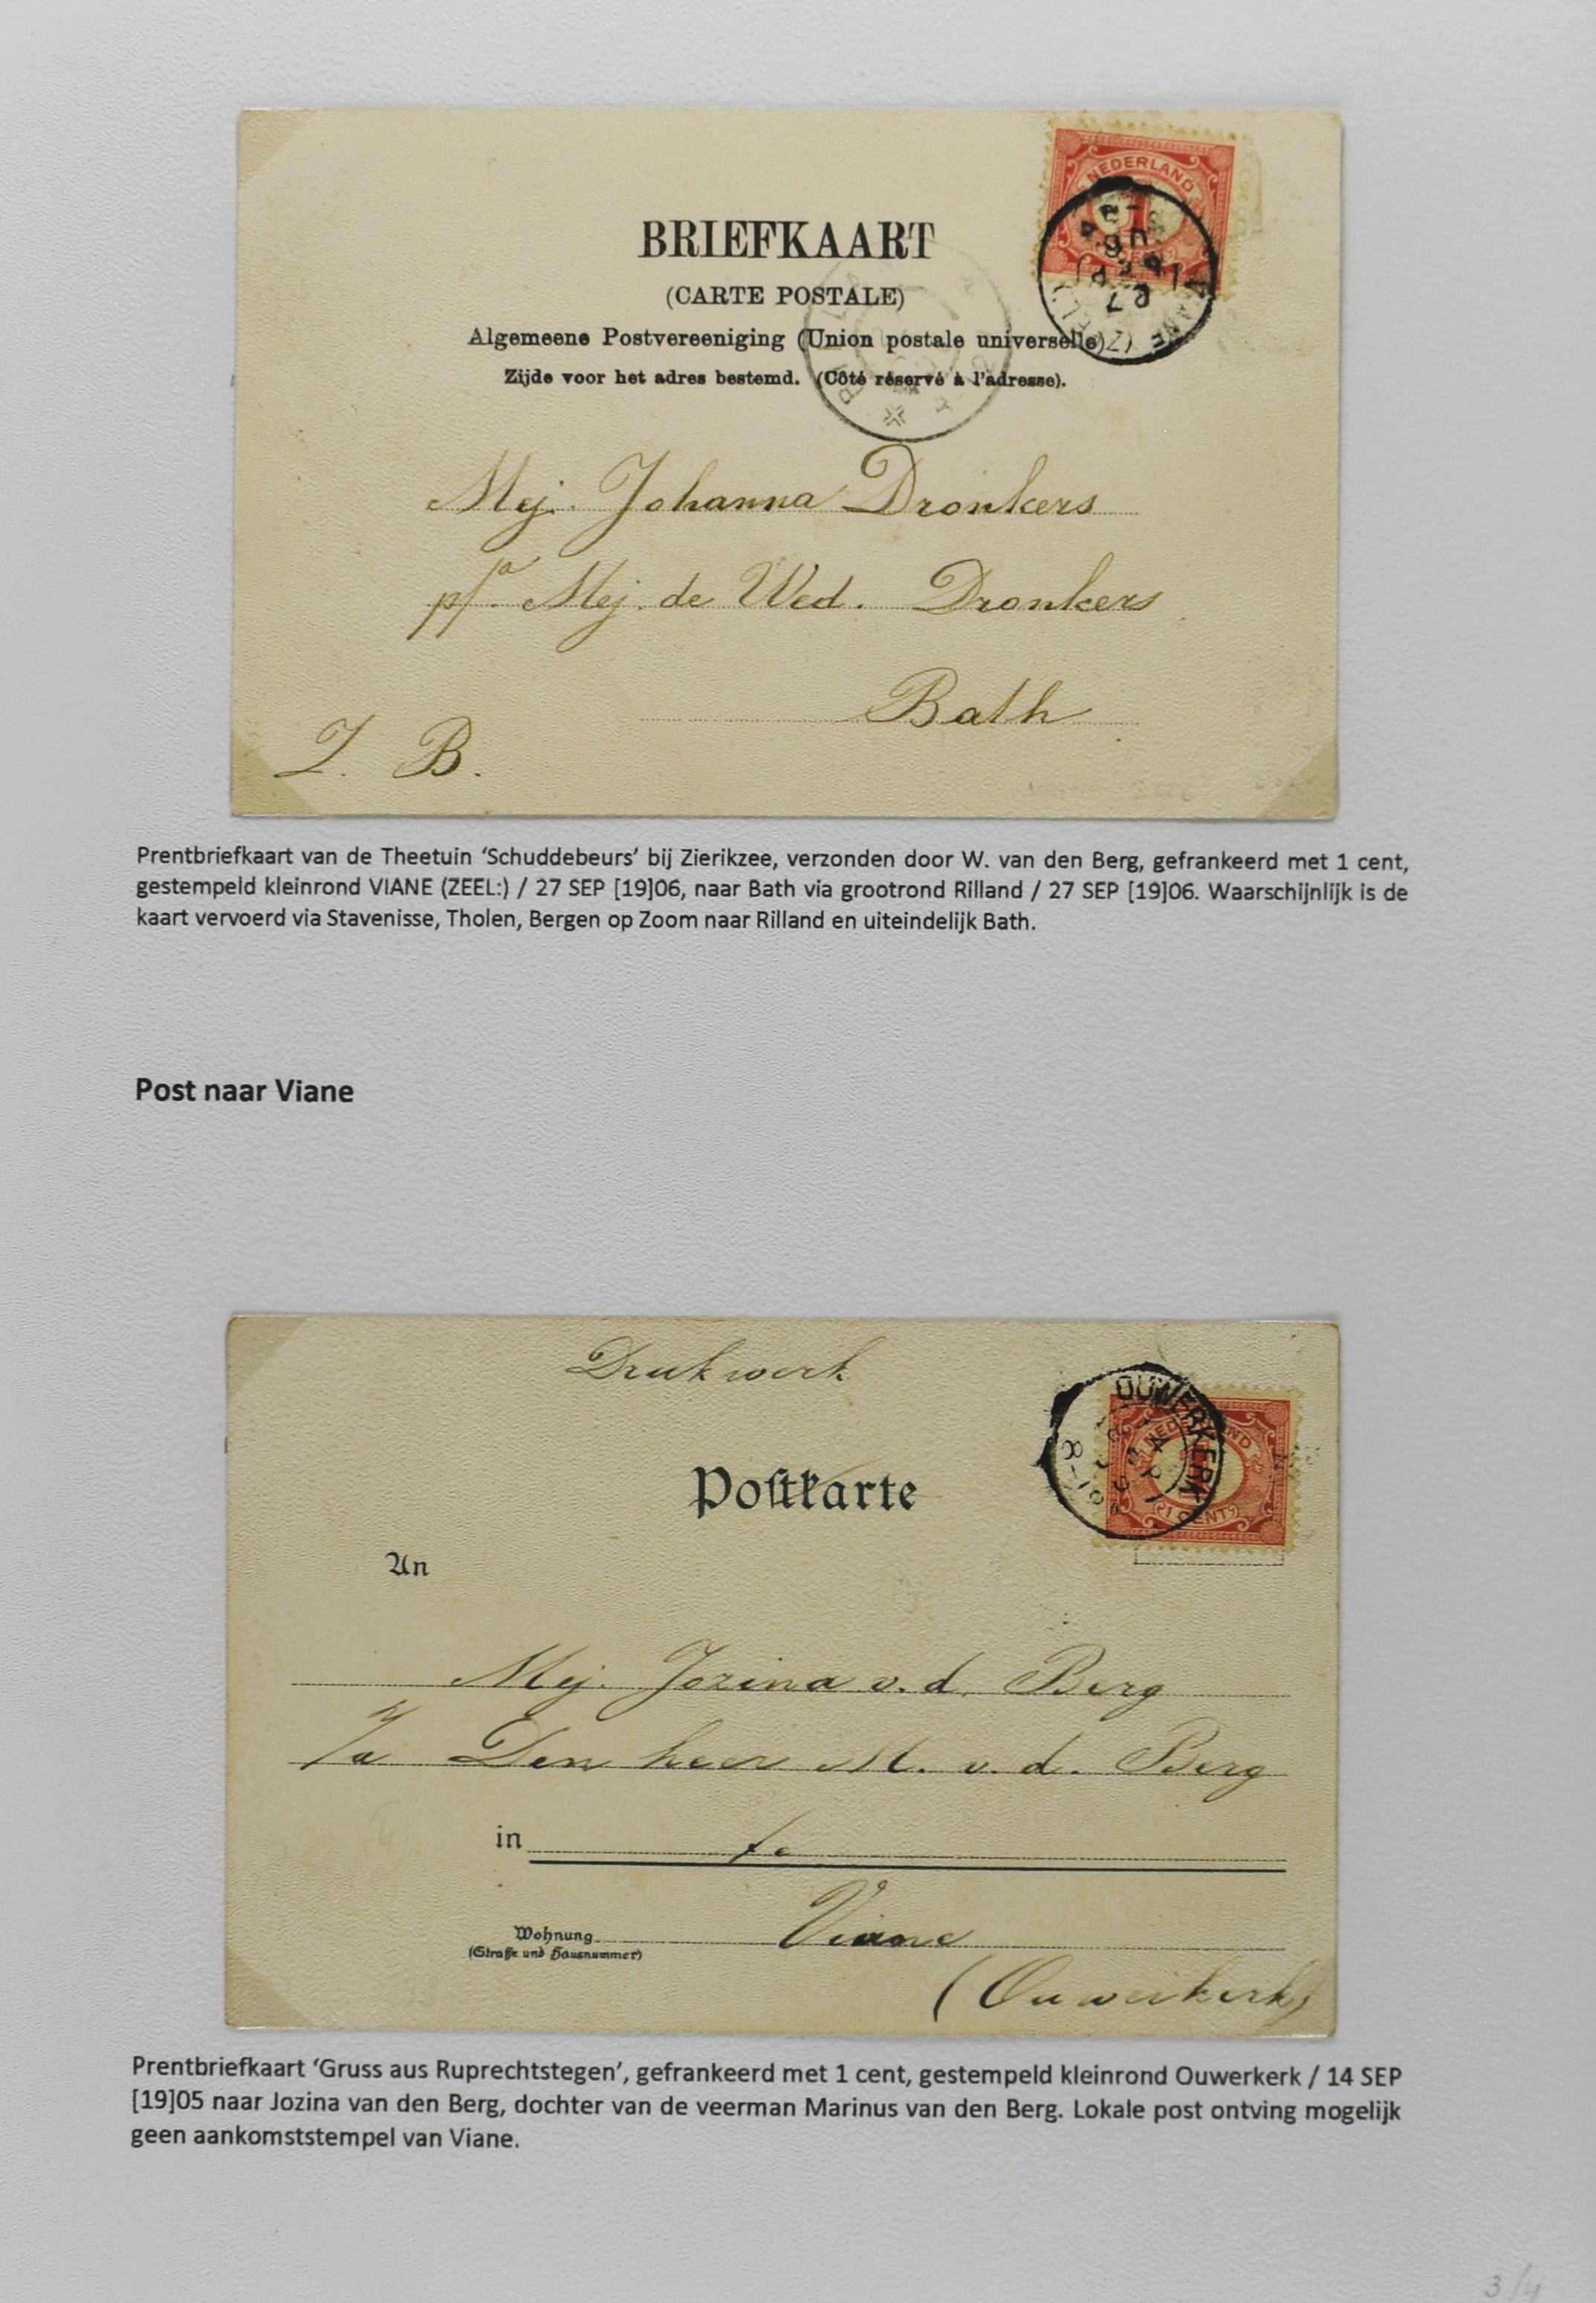 NEDERLAND
1
VIANE (ZEEL:)
27 SEP
06
BRIEFKAART
(CARTE POSTALE)
Algemeene Postvereeniging (Union postale universelle)
Zijde voor het adres bestemd. (Côté réservé à l'adresse).
Mej. Johanna Dronkers
p/a Mej. de Wed. Dronkers
Bath
Z. B.
Prentbriefkaart van de Theetuin ‘Schuddebeurs’ bij Zierikzee, verzonden door W. van den Berg, gefrankeerd met 1 cent,
gestempeld kleinrond VIANE (ZEEL:) / 27 SEP [19]06, naar Bath via grootrond Rilland / 27 SEP [19]06. Waarschijnlijk is de
kaart vervoerd via Stavenisse, Tholen, Bergen op Zoom naar Rilland en uiteindelijk Bath.
Post naar Viane
Drukwerk
OUWERKERK
NEDERLAND
1 CENT
Postkarte
An
Mej. Jozina v. d. Berg
p/a Den heer M. v. d. Berg
in te
Wohnung Viane
(Straße und Hausnummer)
(Ouwerkerk)
Prentbriefkaart ‘Gruss aus Ruprechtstegen’, gefrankeerd met 1 cent, gestempeld kleinrond Ouwerkerk / 14 SEP
[19]05 naar Jozina van den Berg, dochter van de veerman Marinus van den Berg. Lokale post ontving mogelijk
geen aankomststempel van Viane.
3/4